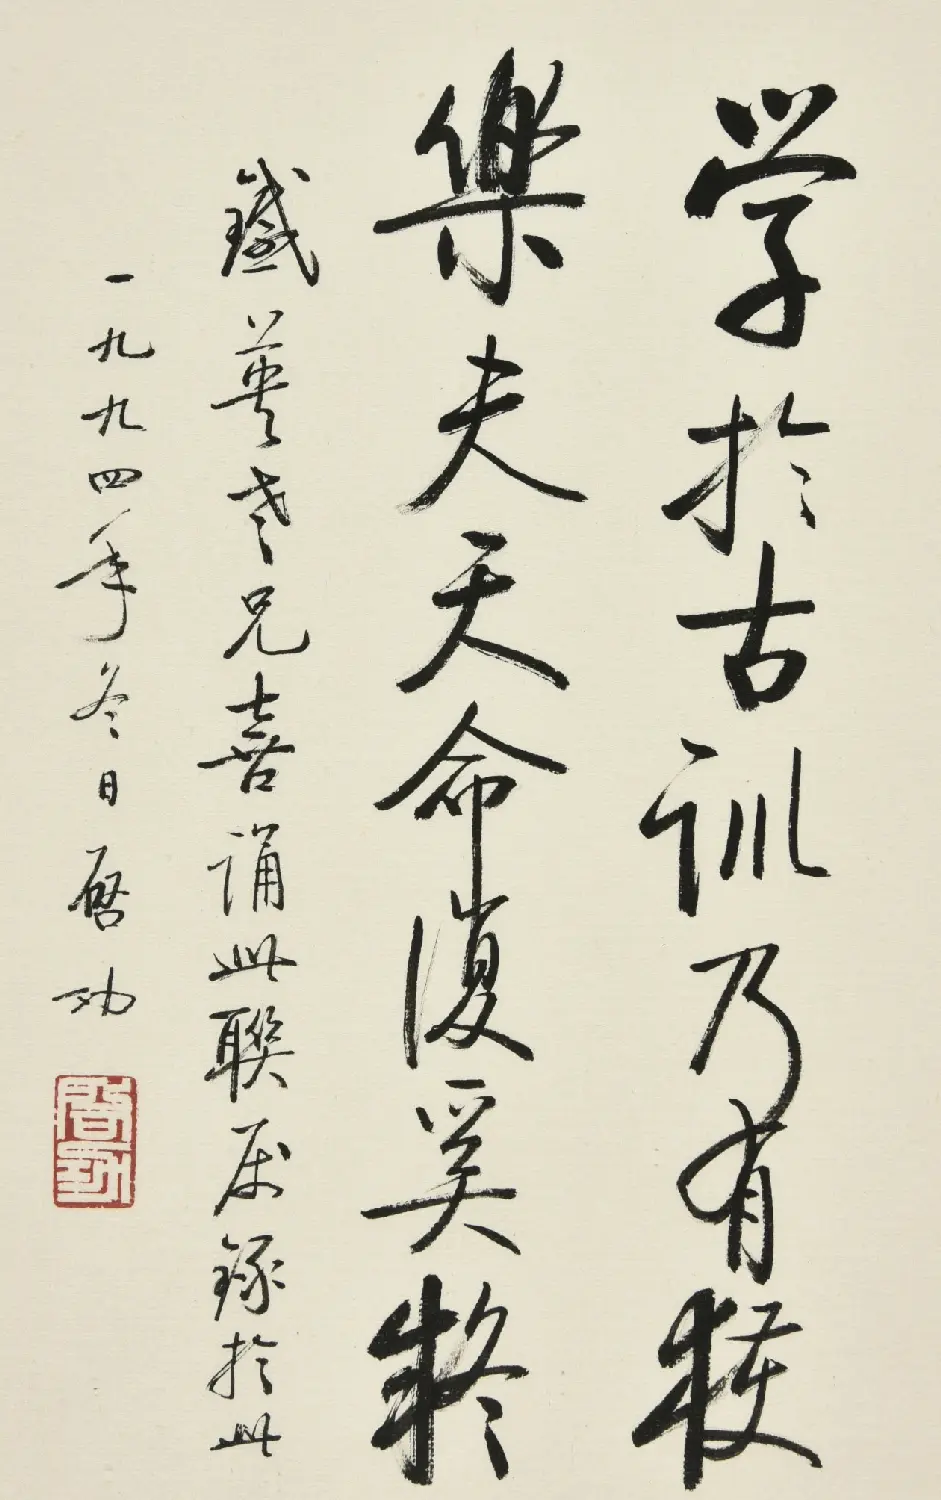 学於古訓乃有獲
樂夫天命復奚疑
鐵英老兄喜誦此聯属錄於此
一九九四年冬日启功
啓功